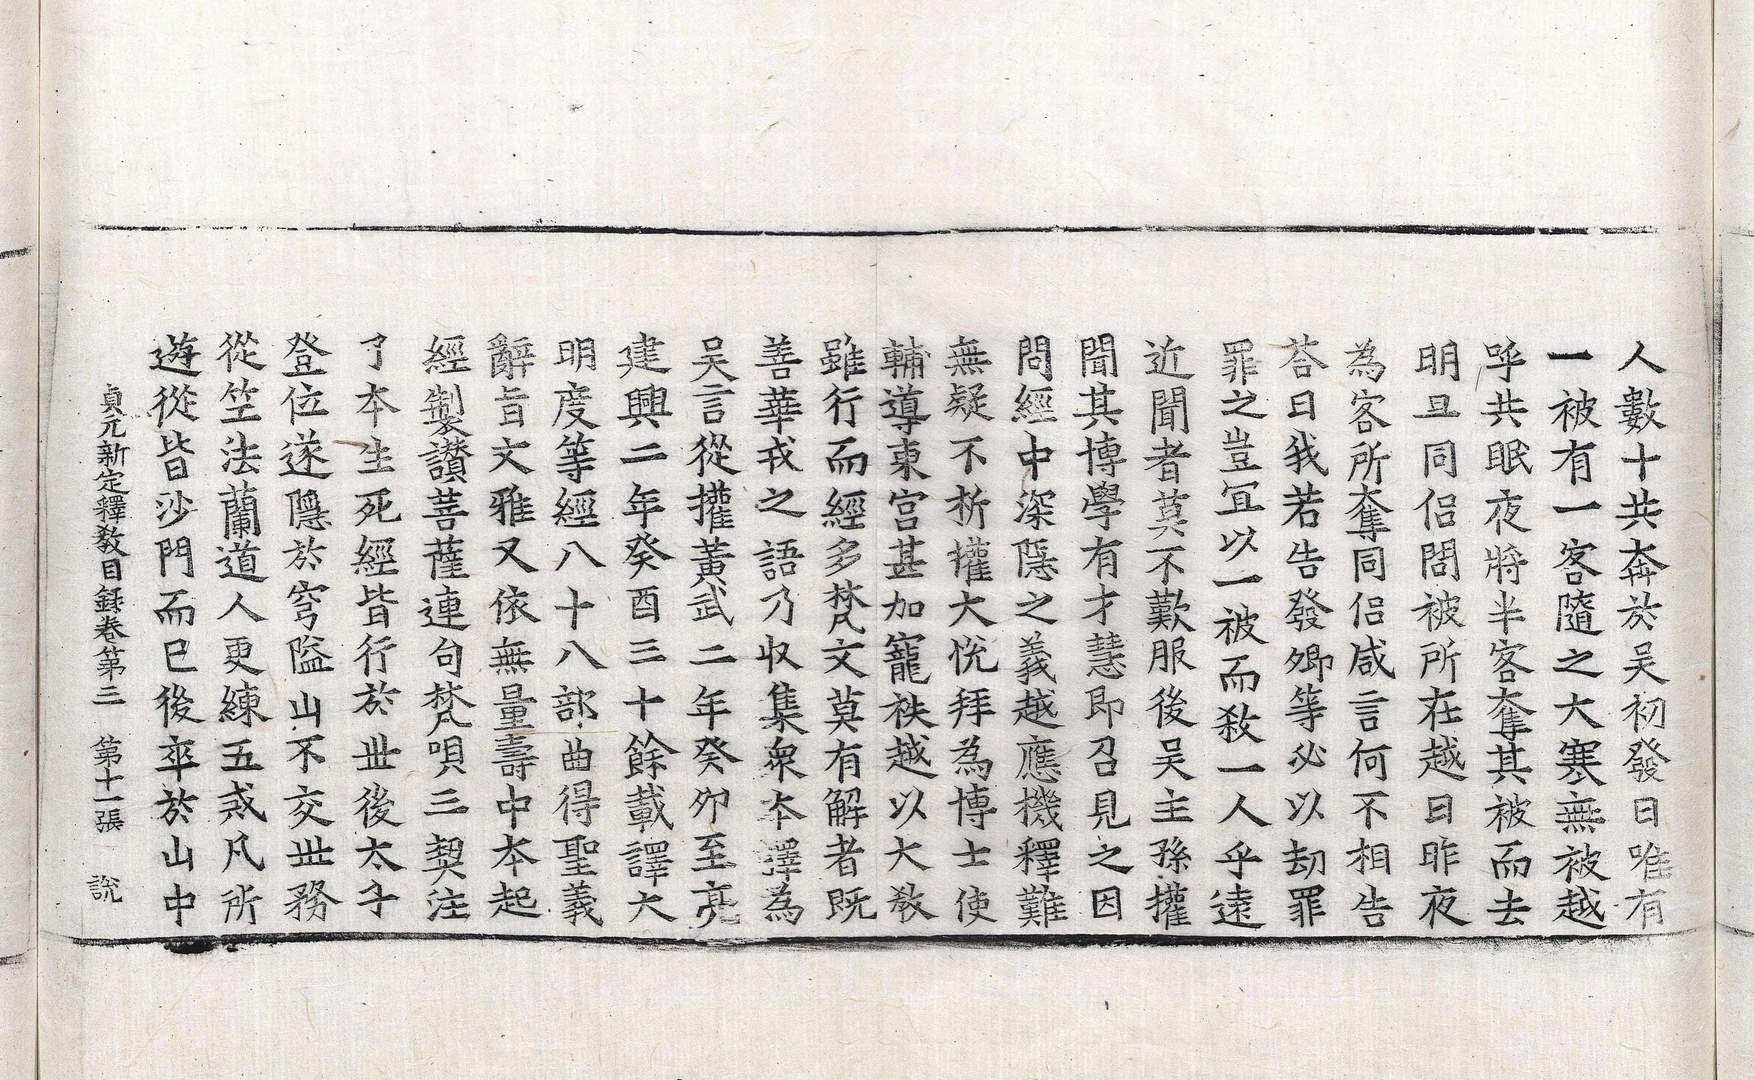 人數十共奔於吳初發日唯有
一被有一客隨之大寒無被越
呼共眠夜將半客奪其被而去
明旦同侶問被所在越曰昨夜
為客所奪同侶咸言何不相告
荅曰我若告發卿等必以劫罪
罪之豈冝以一被而敎一人乎遠
近聞者莫不歎服後吳主孫權
聞其博學有才慧即召見之因
問經中深隱之義越應機釋難
無疑不析權大恱拜為博士使
輔導東宮甚加寵袟越以大敎
雖行而經多梵文莫有解者旣
善華戎之語乃収集衆夲譯為
吳言從權黃武二年癸夘至亮
建興二年癸酉三十餘載譯大
明度等經八十八部曲得聖義
辭旨文雅又依無量壽中夲起
經製讃菩薩連句梵唄三契注
了夲生死經皆行於丗後太子
登位遂隱於穹隘山不交丗務
從竺法蘭道人更練五戒凡所
遊從皆沙門而已後卒於山中
貞元新定釋敎目録卷第三 第十一張 說